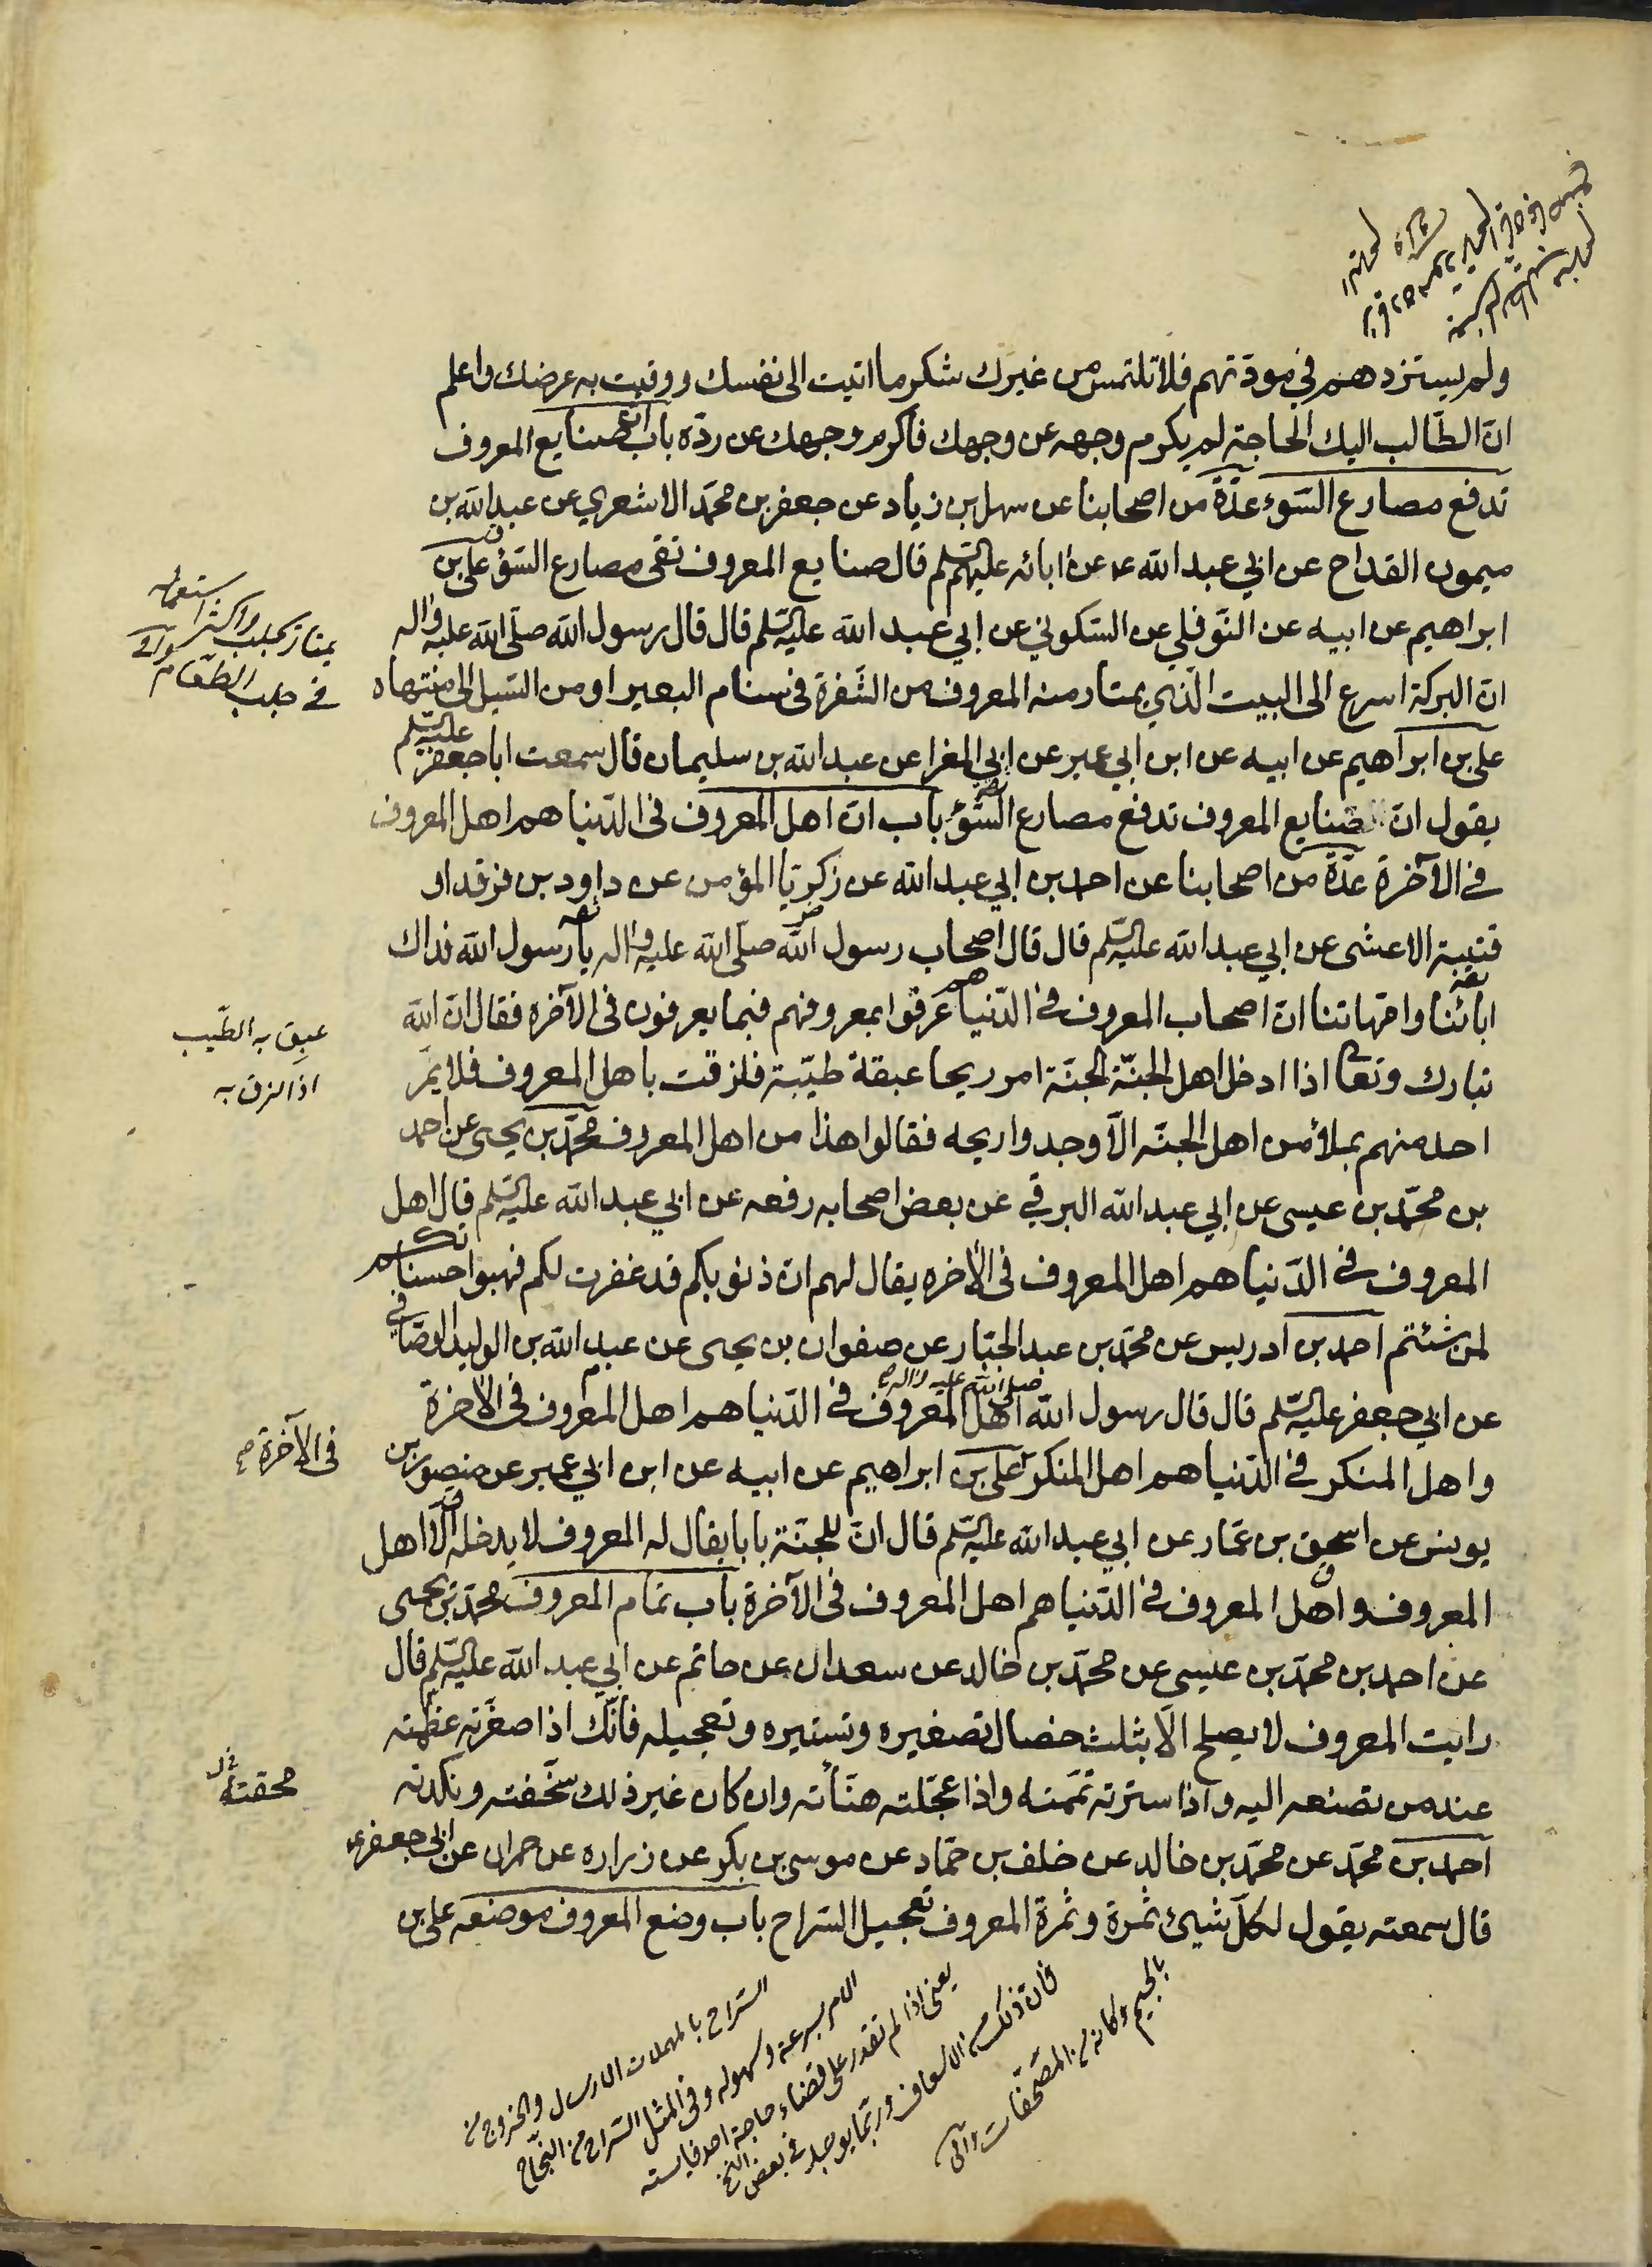 ولم يستزدهم في مودتهم فلا تلتمس من غيرك شكر ما اتيت الى نفسك ووقيت به عرضك واعلم
انّ الطّالب اليك الحاجة لم يكرم وجهه عن وجهك فاكرم وجهك عن ردّه باب انّ صنايع المعروف
تدفع مصارع السّوء عدّة من اصحابنا عن سهل بن زياد عن جعفر بن محمّد الاشعري عن عبد الله بن
ميمون القداح عن ابي عبد الله ع عن ابائه عليهم السّلم قال صنايع المعروف تقى مصارع السّوء علي بن
ابراهيم عن ابيه عن النّوفلي عن السّكوني عن ابي عبد الله عليه السّلم قال قال رسول الله صلّى الله عليه واله
انّ البركة اسرع الى البيت الّذي يمتار منه المعروف من الشّفرة في سنام البعير او من السّيل الى منتهاه
علي بن ابراهيم عن ابيه عن ابن ابي عمير عن ابي المغرا عن عبد الله بن سليمان قال سمعت ابا جعفر عليه السّلم
يقول انّ صنايع المعروف تدفع مصارع السّوء باب انّ اهل المعروف في الدّنيا هم اهل المعروف
في الآخرة عدّة من اصحابنا عن احمد بن ابي عبد الله عن زكريّا المؤمن عن داود بن فرقد او
قتيبة الاعشى عن ابي عبد الله عليه السّلم قال قال اصحاب رسول الله صلّى الله عليه واله يا رسول الله فداك
ابائنا وامّهاتنا انّ اصحاب المعروف في الدّنيا عرفوا بمعروفهم فبما يعرفون في الآخره فقال انّ الله
تبارك وتعالى اذا ادخل اهل الجنّة الجنّة امر ريحا عبقة طيّبة فلزقت باهل المعروف فلا يمرّ
احد منهم بملأ من اهل الجنّه الّا وجدوا ريحه فقالوا هذا من اهل المعروف محمّد بن يحيى عن احمد
بن محمّد بن عيسى عن ابي عبد الله البرقي عن بعض اصحابه رفعه عن ابي عبد الله عليه السّلم قال اهل
المعروف في الدّنيا هم اهل المعروف في الاخره يقال لهم انّ ذنوبكم قد غفرت لكم فهبوا حسناتكم
لمن شئتم احمد بن ادريس عن محمّد بن عبد الجبّار عن صفوان بن يحيى عن عبد الله بن الوليد الوصّافي
عن ابي جعفر عليه السّلم قال قال رسول الله صلى الله عليه واله اهل المعروف في الدّنيا هم اهل المعروف في الاخرة
واهل المنكر في الدّنيا هم اهل المنكر علي بن ابراهيم عن ابيه عن ابن ابي عمير عن منصور بن
في الآخرة صح
يونس عن اسحق بن عمّار عن ابي عبد الله عليه السّلم قال انّ للجنّة بابا يقال له المعروف لا يدخله الّا اهل
المعروف واهل المعروف في الدّنيا هم اهل المعروف في الآخرة باب تمام المعروف محمّد بن يحيى
عن احمد بن محمّد بن عيسى عن محمّد بن خالد عن سعدان عن حاتم عن ابي عبد الله عليه السّلم قال
رايت المعروف لا يصلح الّا بثلث خصال تصغيره وتستيره وتعجيله فانّك اذا صغّرته عظّمته
عند من تصنعه اليه واذا سترته تمّمته واذا عجّلته هنّأته وان كان غير ذلك سخّفته ونكدته
محقته
احمد بن محمّد عن محمّد بن خالد عن خلف بن حمّاد عن موسى بن بكر عن زراره عن حمران عن ابي جعفر ع
قال سمعته يقول لكلّ شيئ ثمرة وثمرة المعروف تعجيل السّراح باب وضع المعروف موضعه علي بن
يمتار يجلب واكثر استعماله
في جلب الطّعام
عبق به الطّيب
اذا لزق به
السّراح بالمهملات الارسال والخروج من
الامر بسرعة وسهوله وفي المثل السّراح من النّجاح
يعنى اذا لم تقدر على قضاء حاجة احد فايسه
فان ذلك من الاسعاف وربّما يوجد في بعض النسخ
بالجيم وكانه من المصحّفات وافى